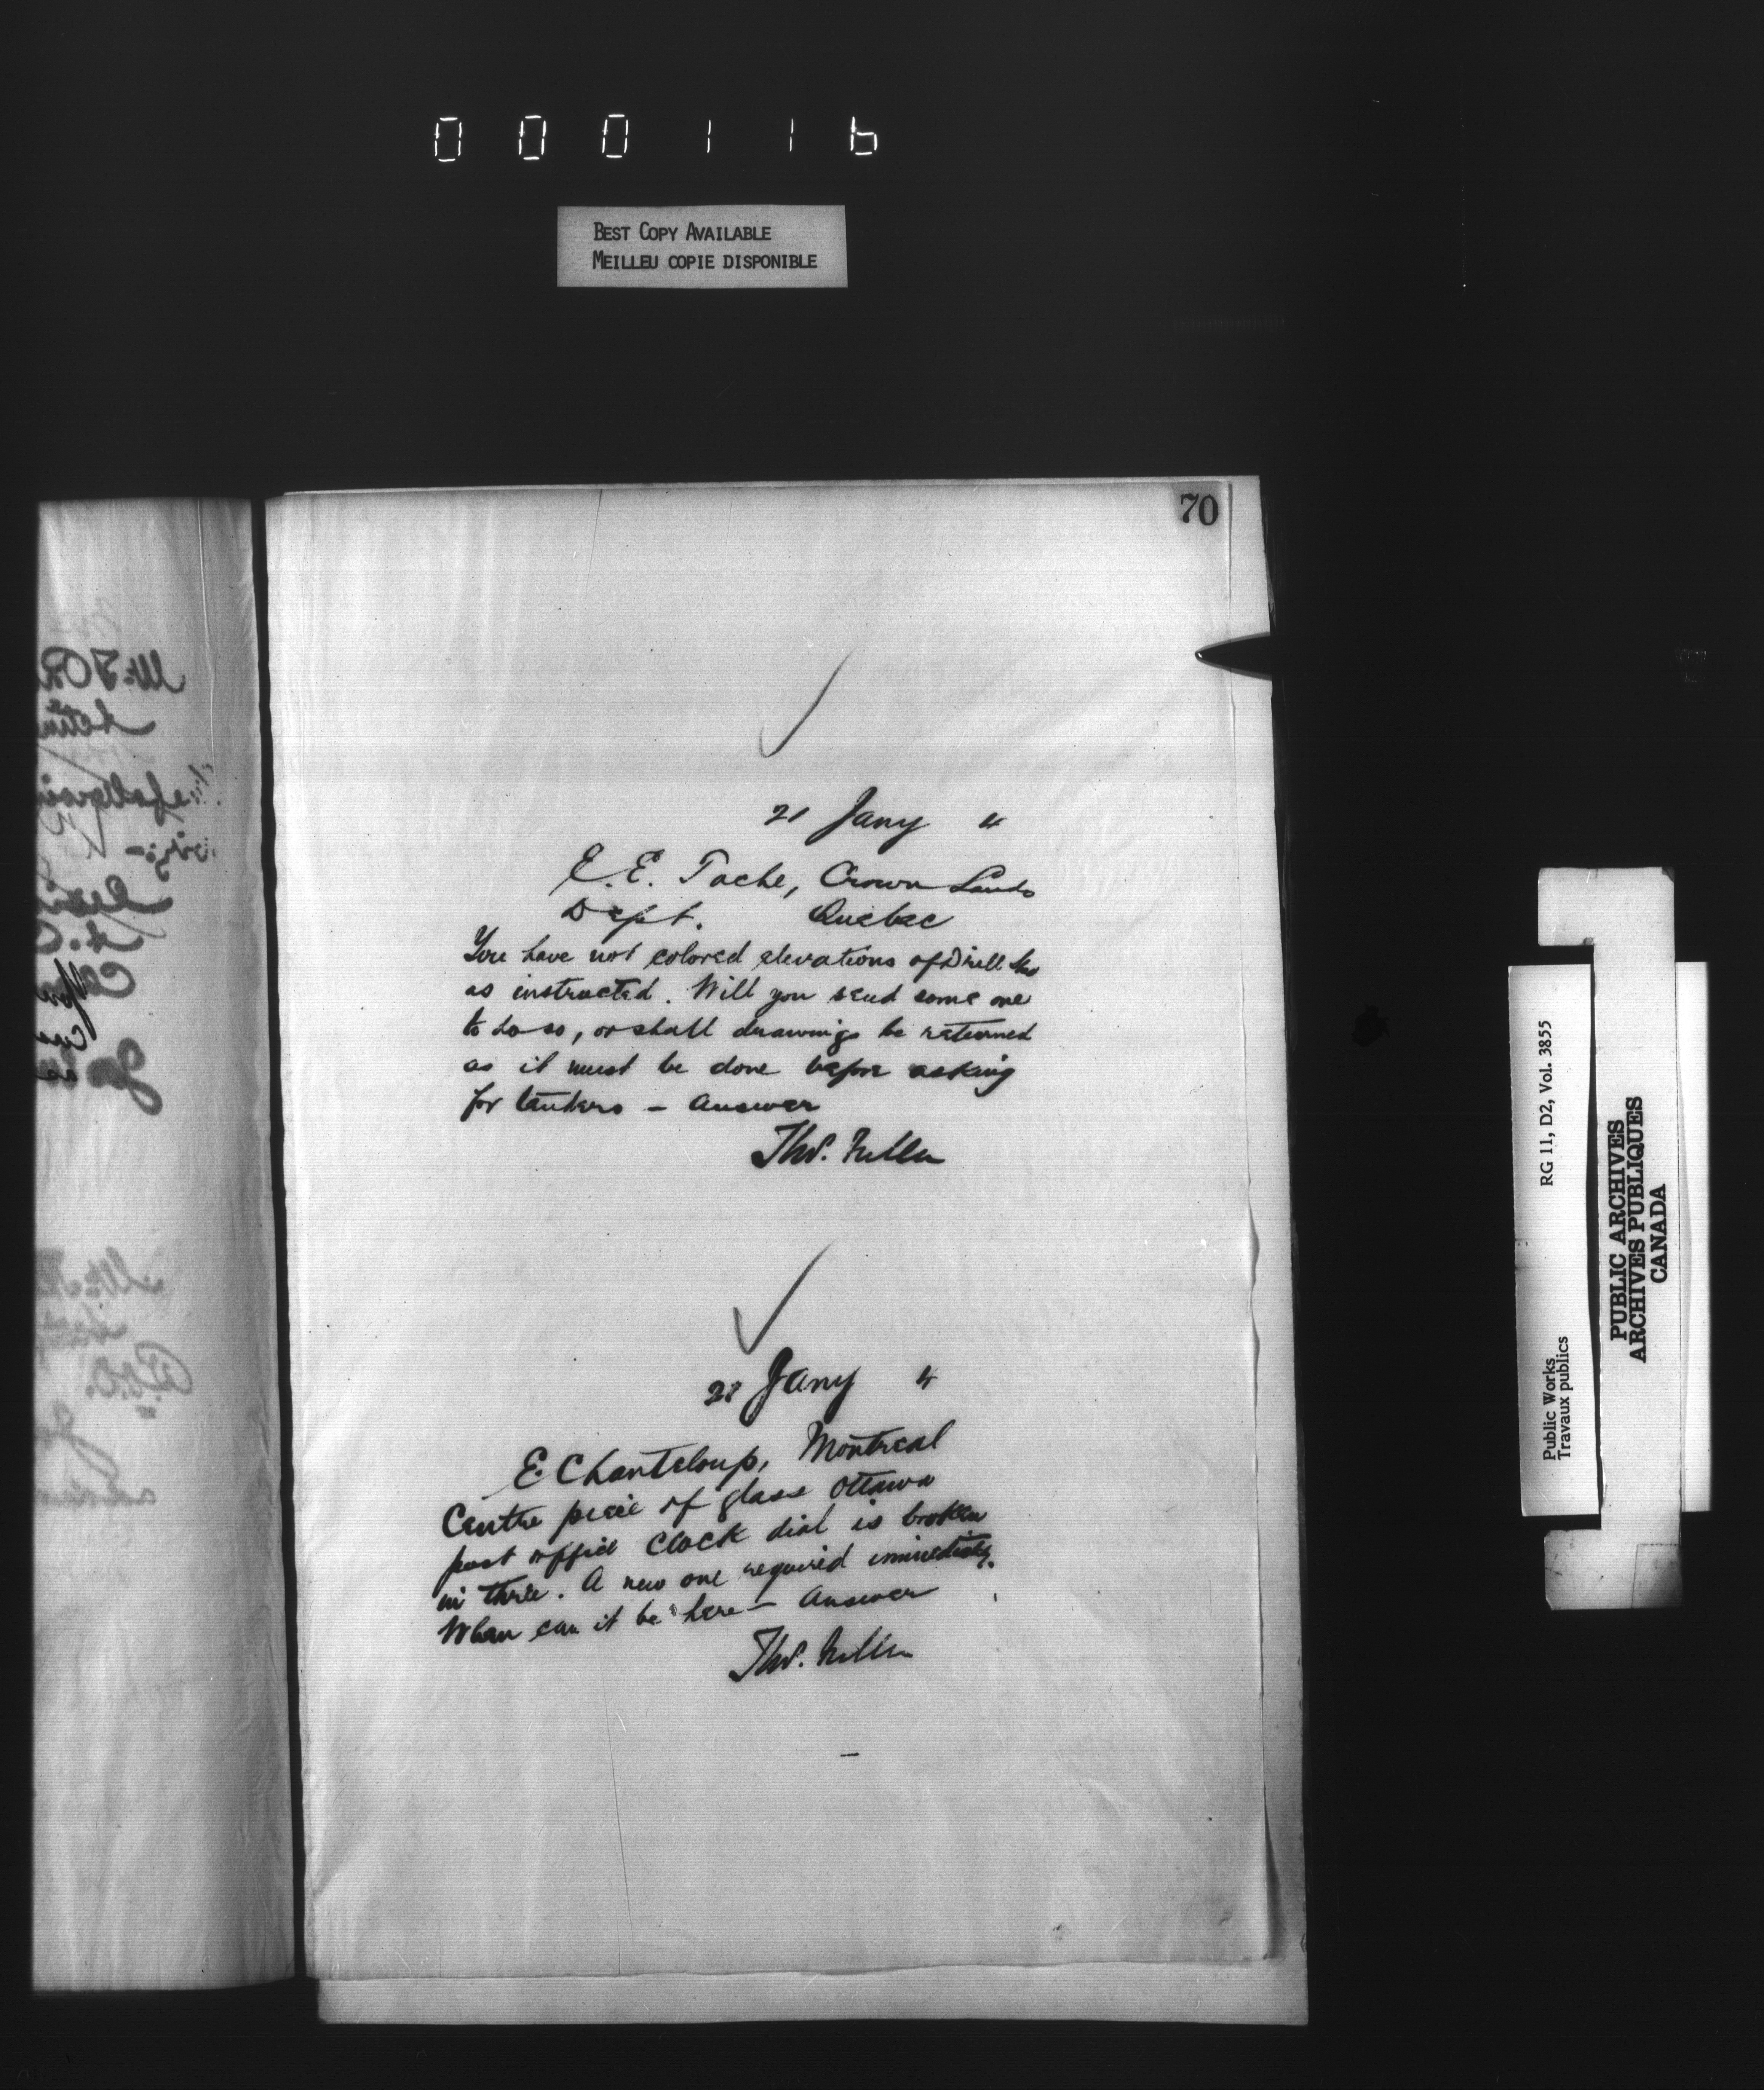 000116
BEST COPY AVAILABLE
MEILLEU COPIE DISPONIBLE
70
21 Jany 4
E. E. Tache, Crown Lands
Dept. Quebec
You have not colored elevations of Drill
as instructed. Will you send some one
to do so, or shall drawings be returned
as it must be done before asking
for tenders - Answer
Thos. Fuller
Jany 4
E. Chanteloup, Montreal
Centre piece of glass Ottawa
post office clock dial is broken
in three. A new one required immediately.
When can it be here - Answer
Thos. Fuller
Public Works RG 11, D2, Vol. 3855
Travaux publics
PUBLIC ARCHIVES
ARCHIVES PUBLIQUES
CANADA